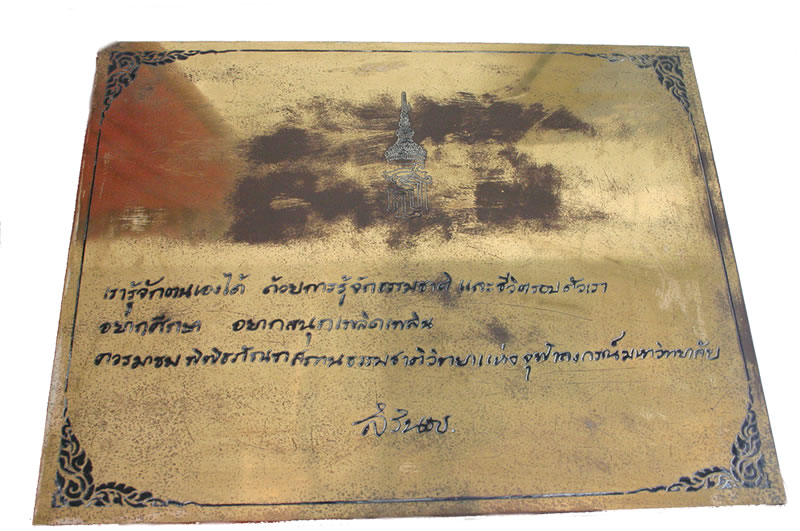 เรารู้จักตนเองได้ ด้วยการรู้จักธรรมชาติ และชีวิตรอบตัวเรา
อยากศึกษา อยากสนุกเพลิดเพลิน
ควรมาชม พิพิธภัณฑสถานธรรมชาติวิทยาแห่งจุฬาลงกรณ์มหาวิทยาลัย
สิรินธร